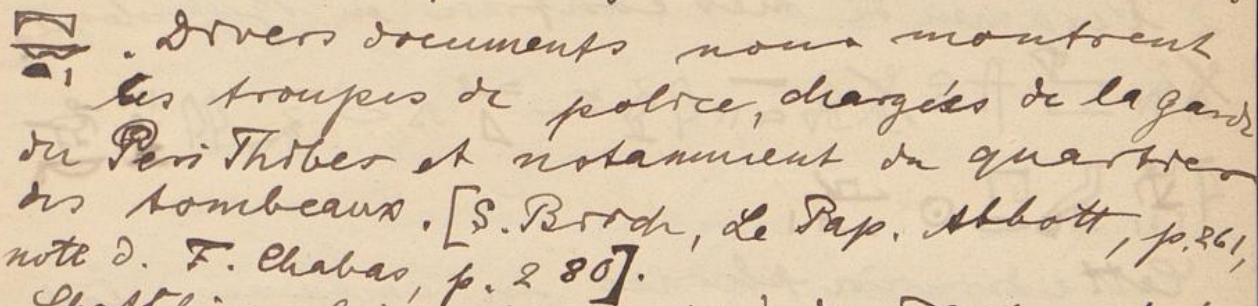 . Divers documents nous montrent
les troupes de police, chargées de la garde
du Peri Thèbes et notamment du quartier
des tombeaux. [S. Birch, Le Pap. Abbott, p. 261,
note d. F. Chabas, p. 280].